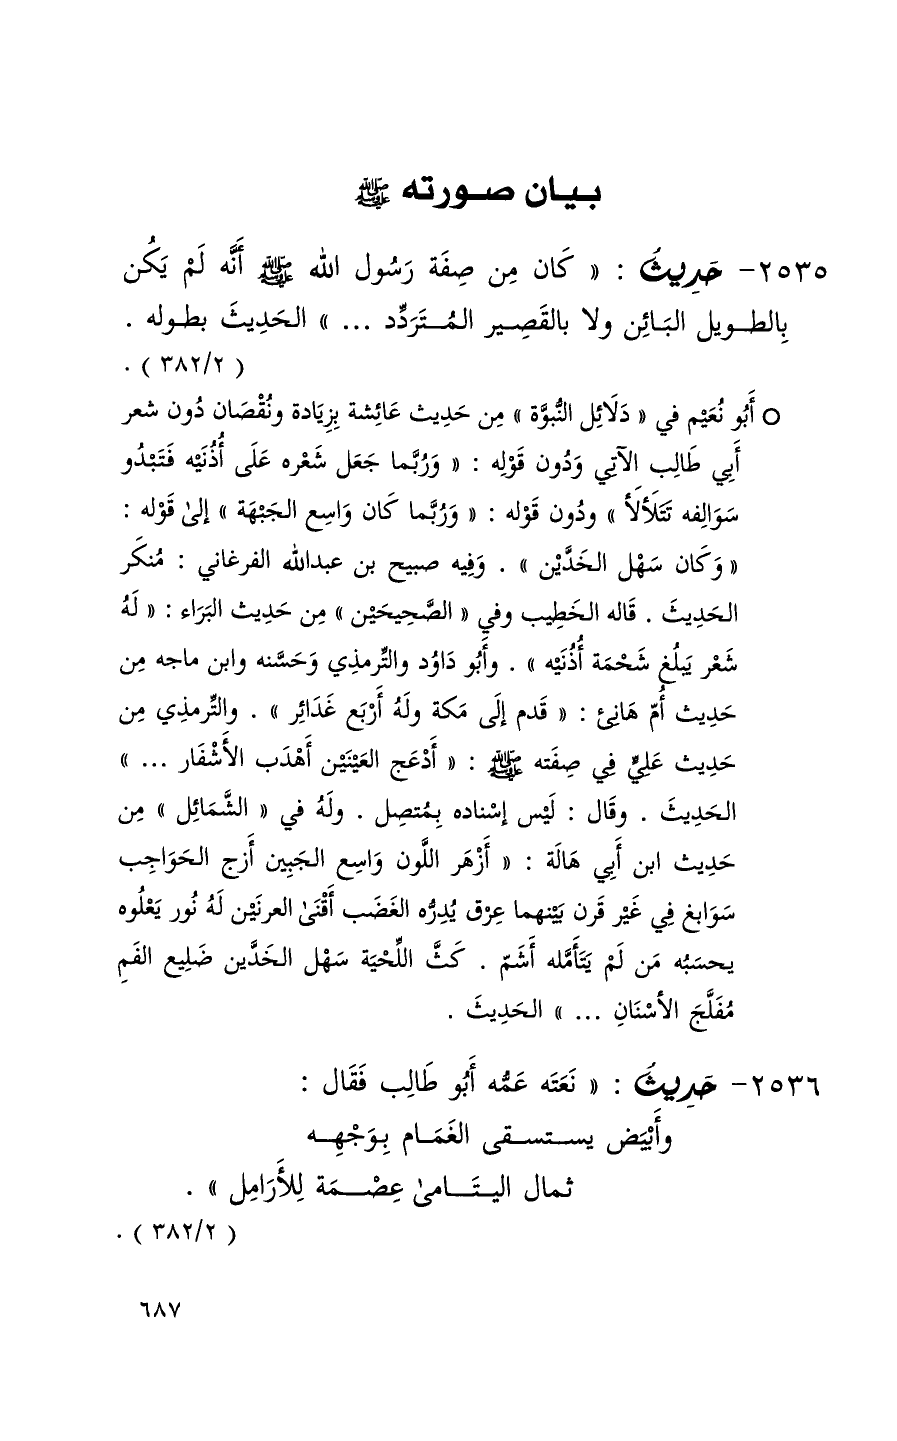 بيان صورته ﷺ
٢٥٣٥- حَدِيثُ : « كَان مِن صِفَة رَسُول الله ﷺ أَنَّه لَمْ يَكُن
بِالطويل البَائِن ولا بالقَصِير المُتَرَدِّد ... » الحَدِيثَ بطوله .
( ٣٨٢/٢ ) .
○ أَبُو نُعَيْم في « دَلَائِل النُّبوَّة » مِن حَدِيث عَائِشة بِزِيَادة ونُقْصَان دُون شعر
أَبِي طَالِب الآتِي وَدُون قَوْلِه : « وَرُبَّما جَعَل شَعْره عَلَى أُذُنَيْه فَتَبْدُو
سَوَالِفه تَتَلَألَأ » ودُون قَوْله : « وَرُبَّما كَان وَاسِع الجَبْهَة » إلىٰ قَوْله :
« وَكَان سَهْل الخَدَّيْن » . وَفِيه صبيح بن عبدالله الفرغاني : مُنكَر
الحَدِيثَ . قَاله الخَطِيب وفي « الصَّحِيحَيْن » مِن حَدِيث البَرَاء : « لَهُ
شَعْر يَبلُغ شَحْمَة أُذُنَيْه » . وأَبُو دَاوُد والتِّرمذِي وَحَسَّنه وابن ماجه مِن
حَدِيث أُمّ هَانِئ : « قَدم إلَى مَكة ولَهُ أَرْبَع غَدَائِر » . والتِّرمذِي مِن
حَدِيث عَلِيٍّ فِي صِفَته ﷺ : « أَدْعَج العَيْنَيْن أَهْدَب الأَشْفَار ... »
الحَدِيثَ . وقَال : لَيْس إسْناده بِمُتصِل . ولَهُ في « الشَّمَائِل » مِن
حَدِيث ابن أَبِي هَالَة : « أَزْهَر اللَّون وَاسِع الجَبِين أَزج الحَوَاجِب
سَوَابغ فِي غَيْر قَرن بَيْنهما عِرْق يُدِرُّه الغَضَب أَقْنَىٰ العرنَيْن لَهُ نُور يَعْلُوه
يحسَبُه مَن لَمْ يَتَأمَّله أَشَمّ . كَثَّ اللِّحْيَة سَهْل الخَدَّين ضَلِيع الفَمِ
مُفَلَّجَ الأسْنَانِ ... » الحَدِيثَ .
٢٥٣٦- حَدِيثُ : « نَعَتَه عَمُّه أَبُو طَالِب فَقَال :
وأَبْيَض يستسقى الغَمَام بِوَجْهِه
ثمال اليتَامىٰ عِصْمَة لِلأَرَامِل » .
( ٣٨٢/٢ ) .
٦٨٧